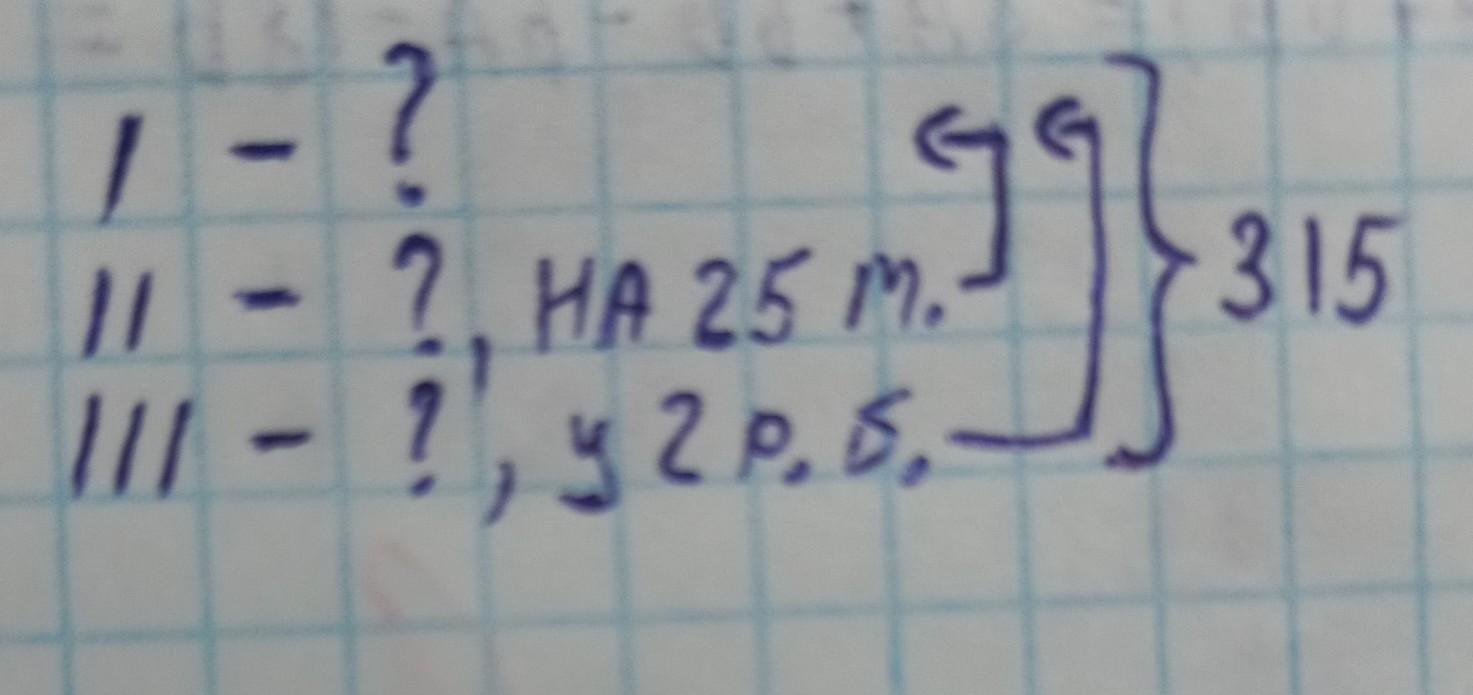 I - ?
II - ?, НА 25 м.
III - ?, у 2 р. б.
315